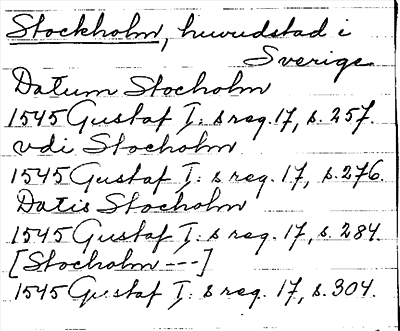 Stockholm, huvudstad i
Sverige
Datum Stocholm
1545 Gustaf I: s reg. 17, s. 257.
vdi Stocholm
1545 Gustaf I: s reg. 17, s. 276.
Datis Stocholm
1545 Gustaf I: s reg. 17, s. 284.
[Stocholm ---]
1545 Gustaf I: s reg. 17, s. 304.